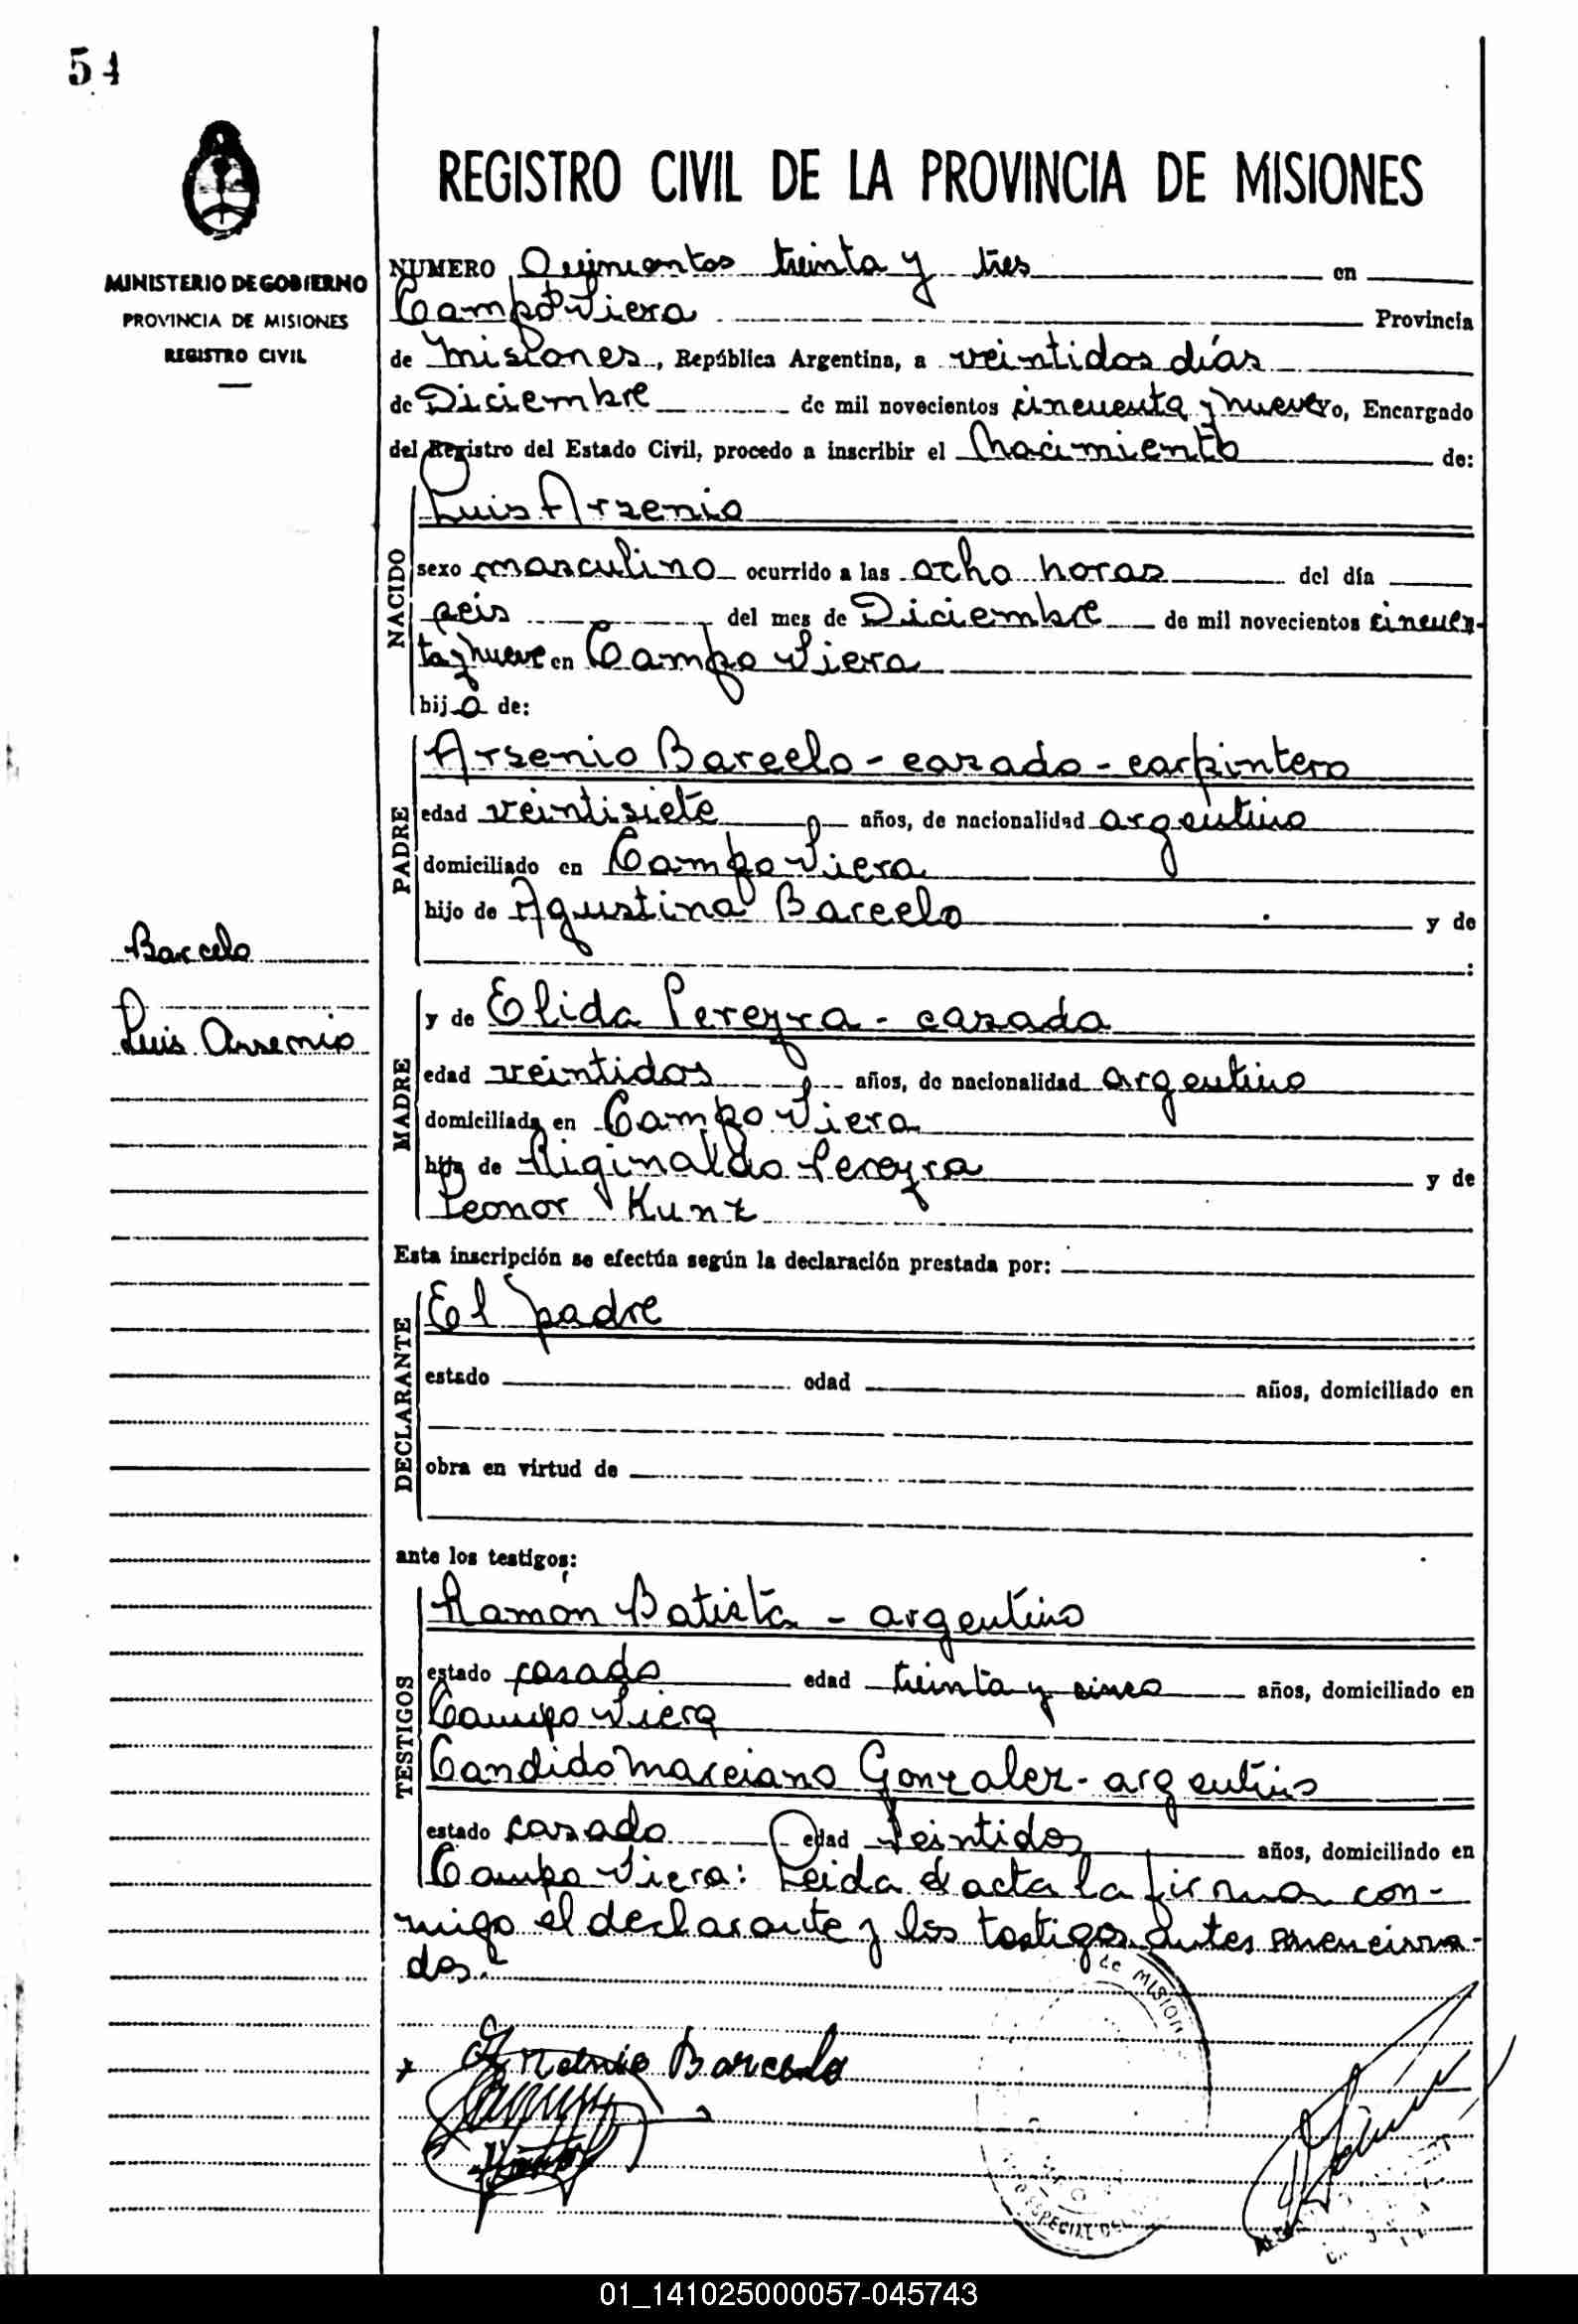 54
MINISTERIO DE GOBIERNO
PROVINCIA DE MISIONES
REGISTRO CIVIL
REGISTRO CIVIL DE LA PROVINCIA DE MISIONES
NUMERO Quinientos treinta y tres en
Campo Viera Provincia
de Misiones, República Argentina, a veintidos días
de Diciembre de mil novecientos cincuenta y nueve yo, Encargado
del Registro del Estado Civil, procedo a inscribir el Nacimiento de:
Luis Arsenio
NACIDO
sexo masculino ocurrido a las ocho horas del día
seis del mes de Diciembre de mil novecientos cincuen-
ta y nueve en Campo Viera
hijo de:
Arsenio Barcelo - casado - carpintero
PADRE
edad veintisiete años, de nacionalidad argentino
domiciliado en Campo Viera
hijo de Agustina Barcelo y de
Barcelo
Luis Arsenio
MADRE
y de Elida Pereyra - casada
edad veintidos años, de nacionalidad argentino
domiciliada en Campo Viera
hija de Riginaldo Pereyra y de
Leonor Kunz
Esta inscripción se efectúa según la declaración prestada por:
DECLARANTE
El padre
estado edad años, domiciliado en
obra en virtud de
ante los testigos:
TESTIGOS
Ramón Batista - argentino
estado casado edad treinta y cinco años, domiciliado en
Campo Viera
Candido Marciano Gonzalez - argentino
estado casado edad veintidos años, domiciliado en
Campo Viera: Leida el acta la firma con-
migo el declarante y los testigos antes menciona-
dos.
Arsenio Barcelo
de MISION
ESPECIAL DEL
01_141025000057-045743